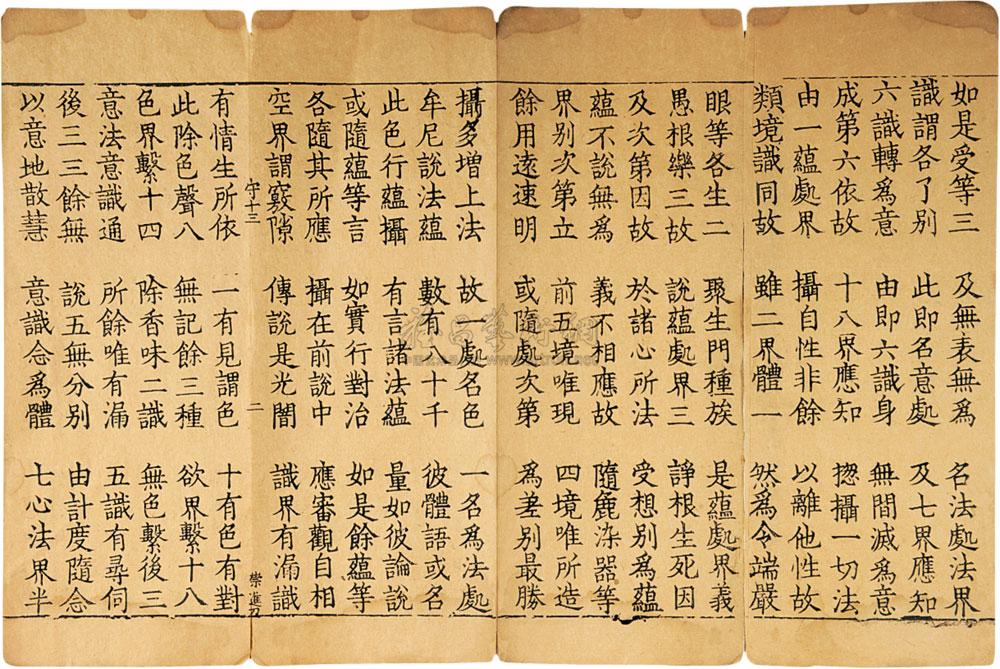 如是受等三 及無表無為 名法處法界
識謂各了別 此即名意處 及七界應知
六識轉為意 由即六識身 無間滅為意
成第六依故 十八界應知 揔攝一切法
由一蘊處界 攝自性非餘 以離他性故
類境識同故 雖二界體一 然為令端嚴
眼等各生二 聚生門種族 是蘊處界義
愚根樂三故 說蘊處界三 諍根生死因
及次第因故 於諸心所法 受想別為蘊
蘊不說無為 義不相應故 隨麁染器等
界別次第立 前五境唯現 四境唯所造
餘用遠速明 或隨處次第 為差別最勝
攝多增上法 故一處名色 一名為法處
牟尼說法蘊 數有八十千 彼體語或名
此色行蘊攝 有言諸法蘊 量如彼論說
或隨蘊等言 如實行對治 如是餘蘊等
各隨其所應 攝在前說中 應審觀自相
空界謂竅隙 傳說是光闇 識界有漏識
守十三 二
有情生所依 一有見謂色 十有色有對
此除色聲八 無記餘三種 欲界繫十八
色界繫十四 除香味二識 無色繫後三
意法意識通 所餘唯有漏 五識有尋伺
後三三餘無 說五無分別 由計度隨念
以意地散慧 意識念為體 七心法界半